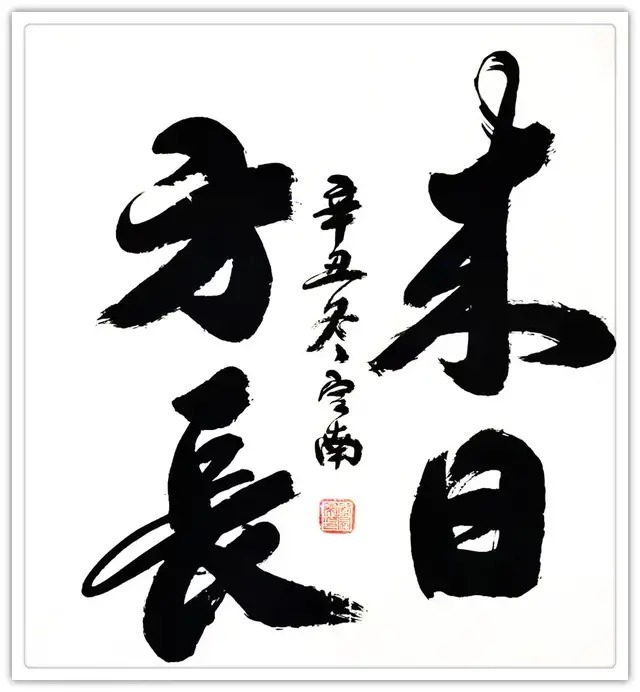 来日
方長
辛丑冬南